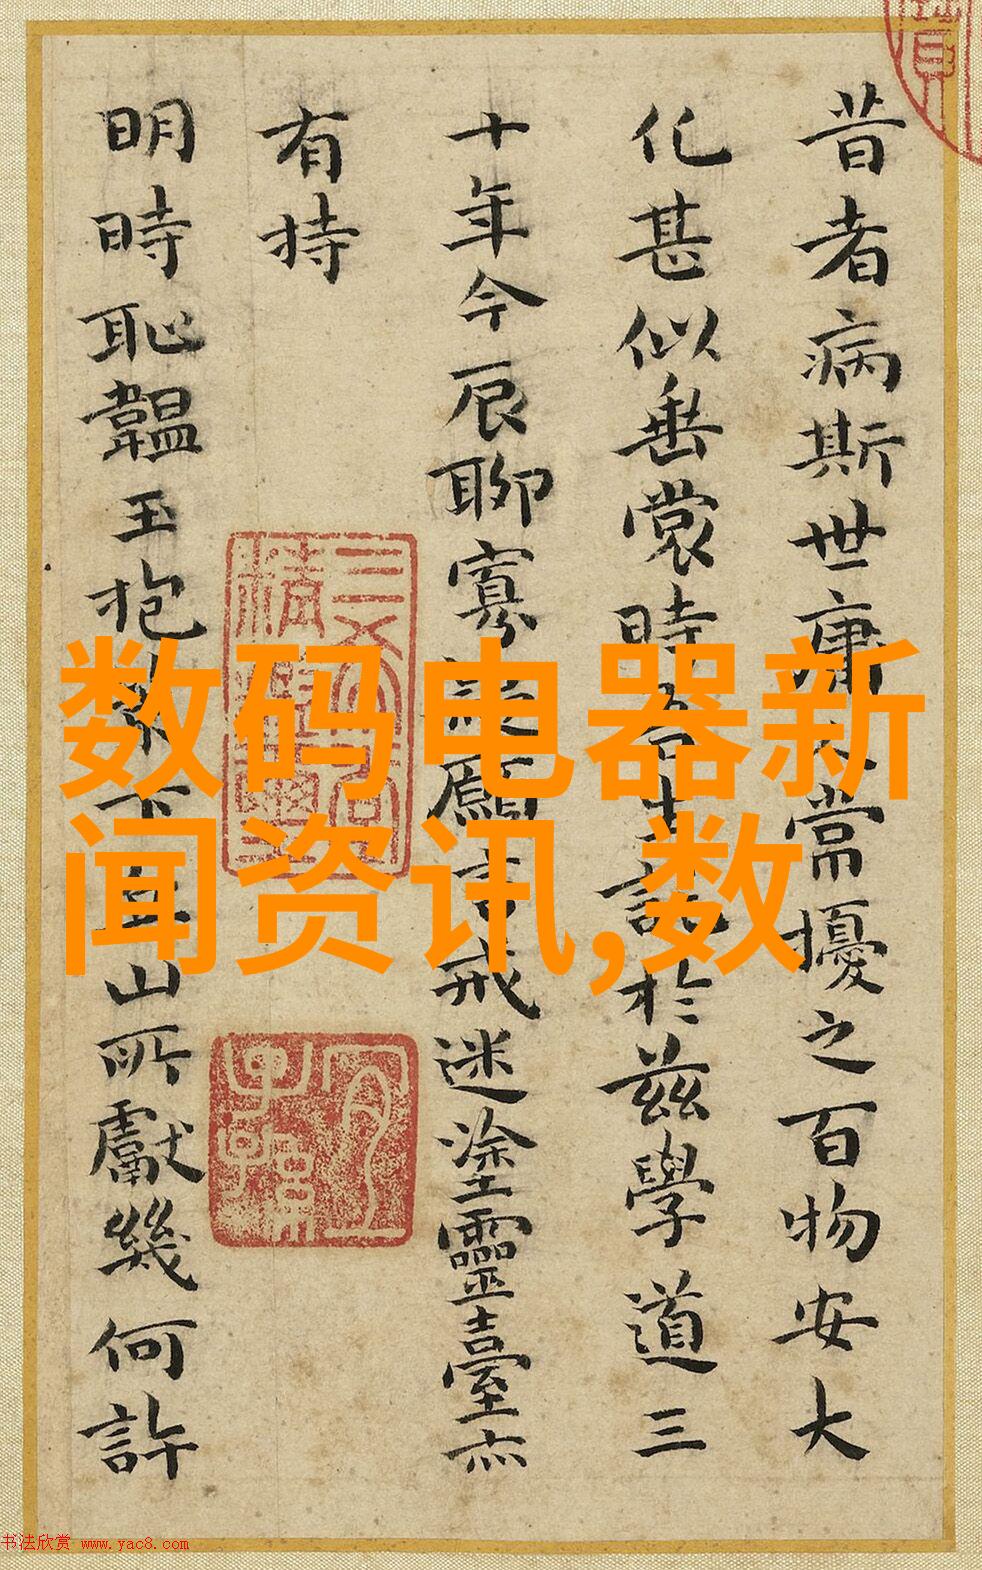 昔者病斯世庸人常擾之百物安大
化甚似垂裳時名士記於茲學道三
十年今辰聊寡過願言戒迷塗靈臺亦
有持
明時恥韞玉抱
山所獻幾何許
数码电器新
闻资讯,数
书法欣赏 www.yac8.com